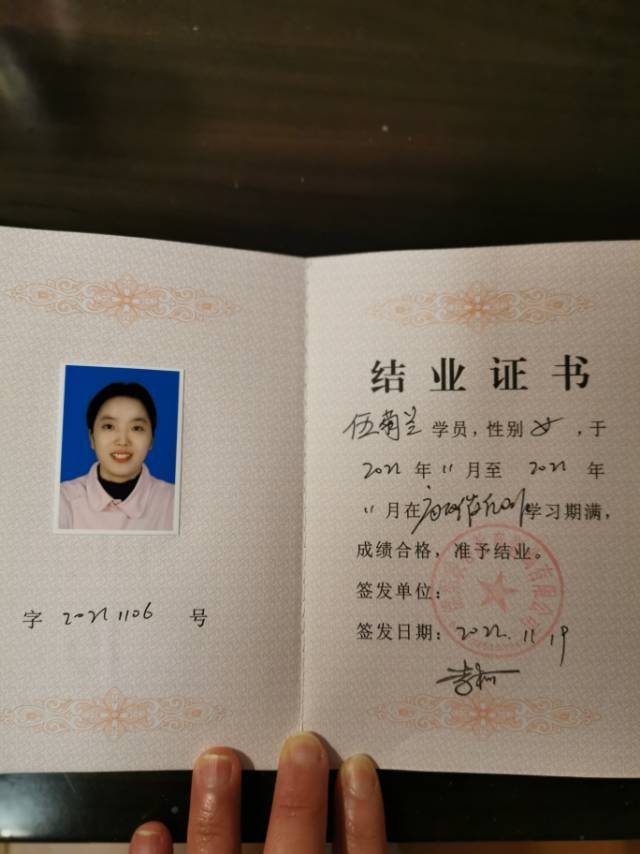 字 20221106 号
结业证书
伍菊兰 学员，性别 女，于
2022 年 11 月至 2022 年
11 月在 学习期满，
成绩合格，准予结业。
签发单位：
签发日期：2022.11.19
有限公司